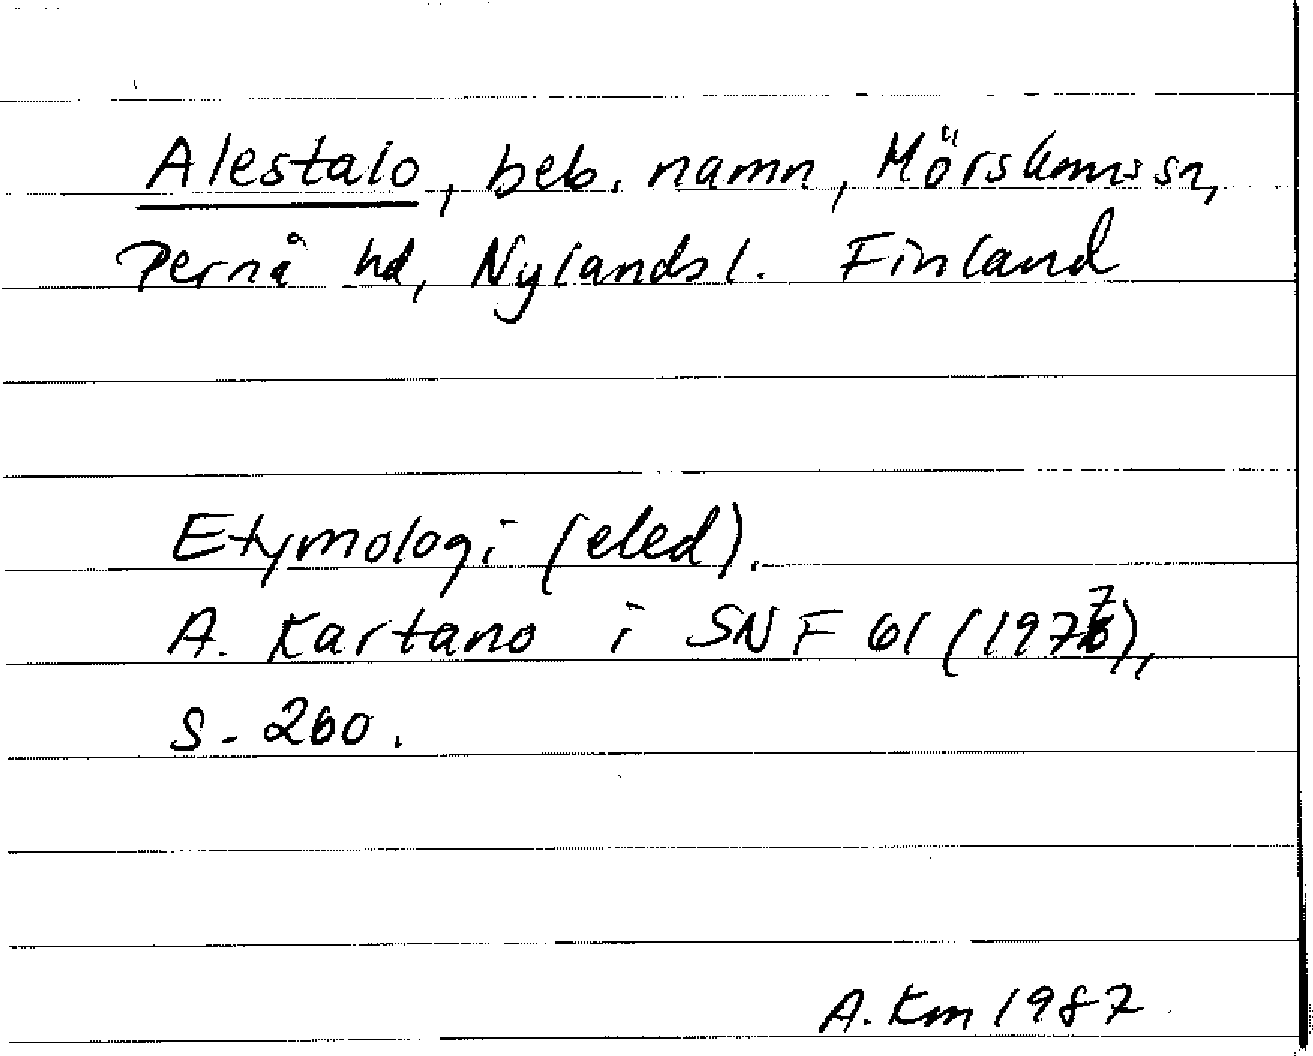 Alestalo, beb. namn, Mörskoms sn,
Pernå hd, Nylands l. Finland
Etymologi (eled).
A. Kartano i SNF 61 (1977),
S. 260.
A. Km 1987